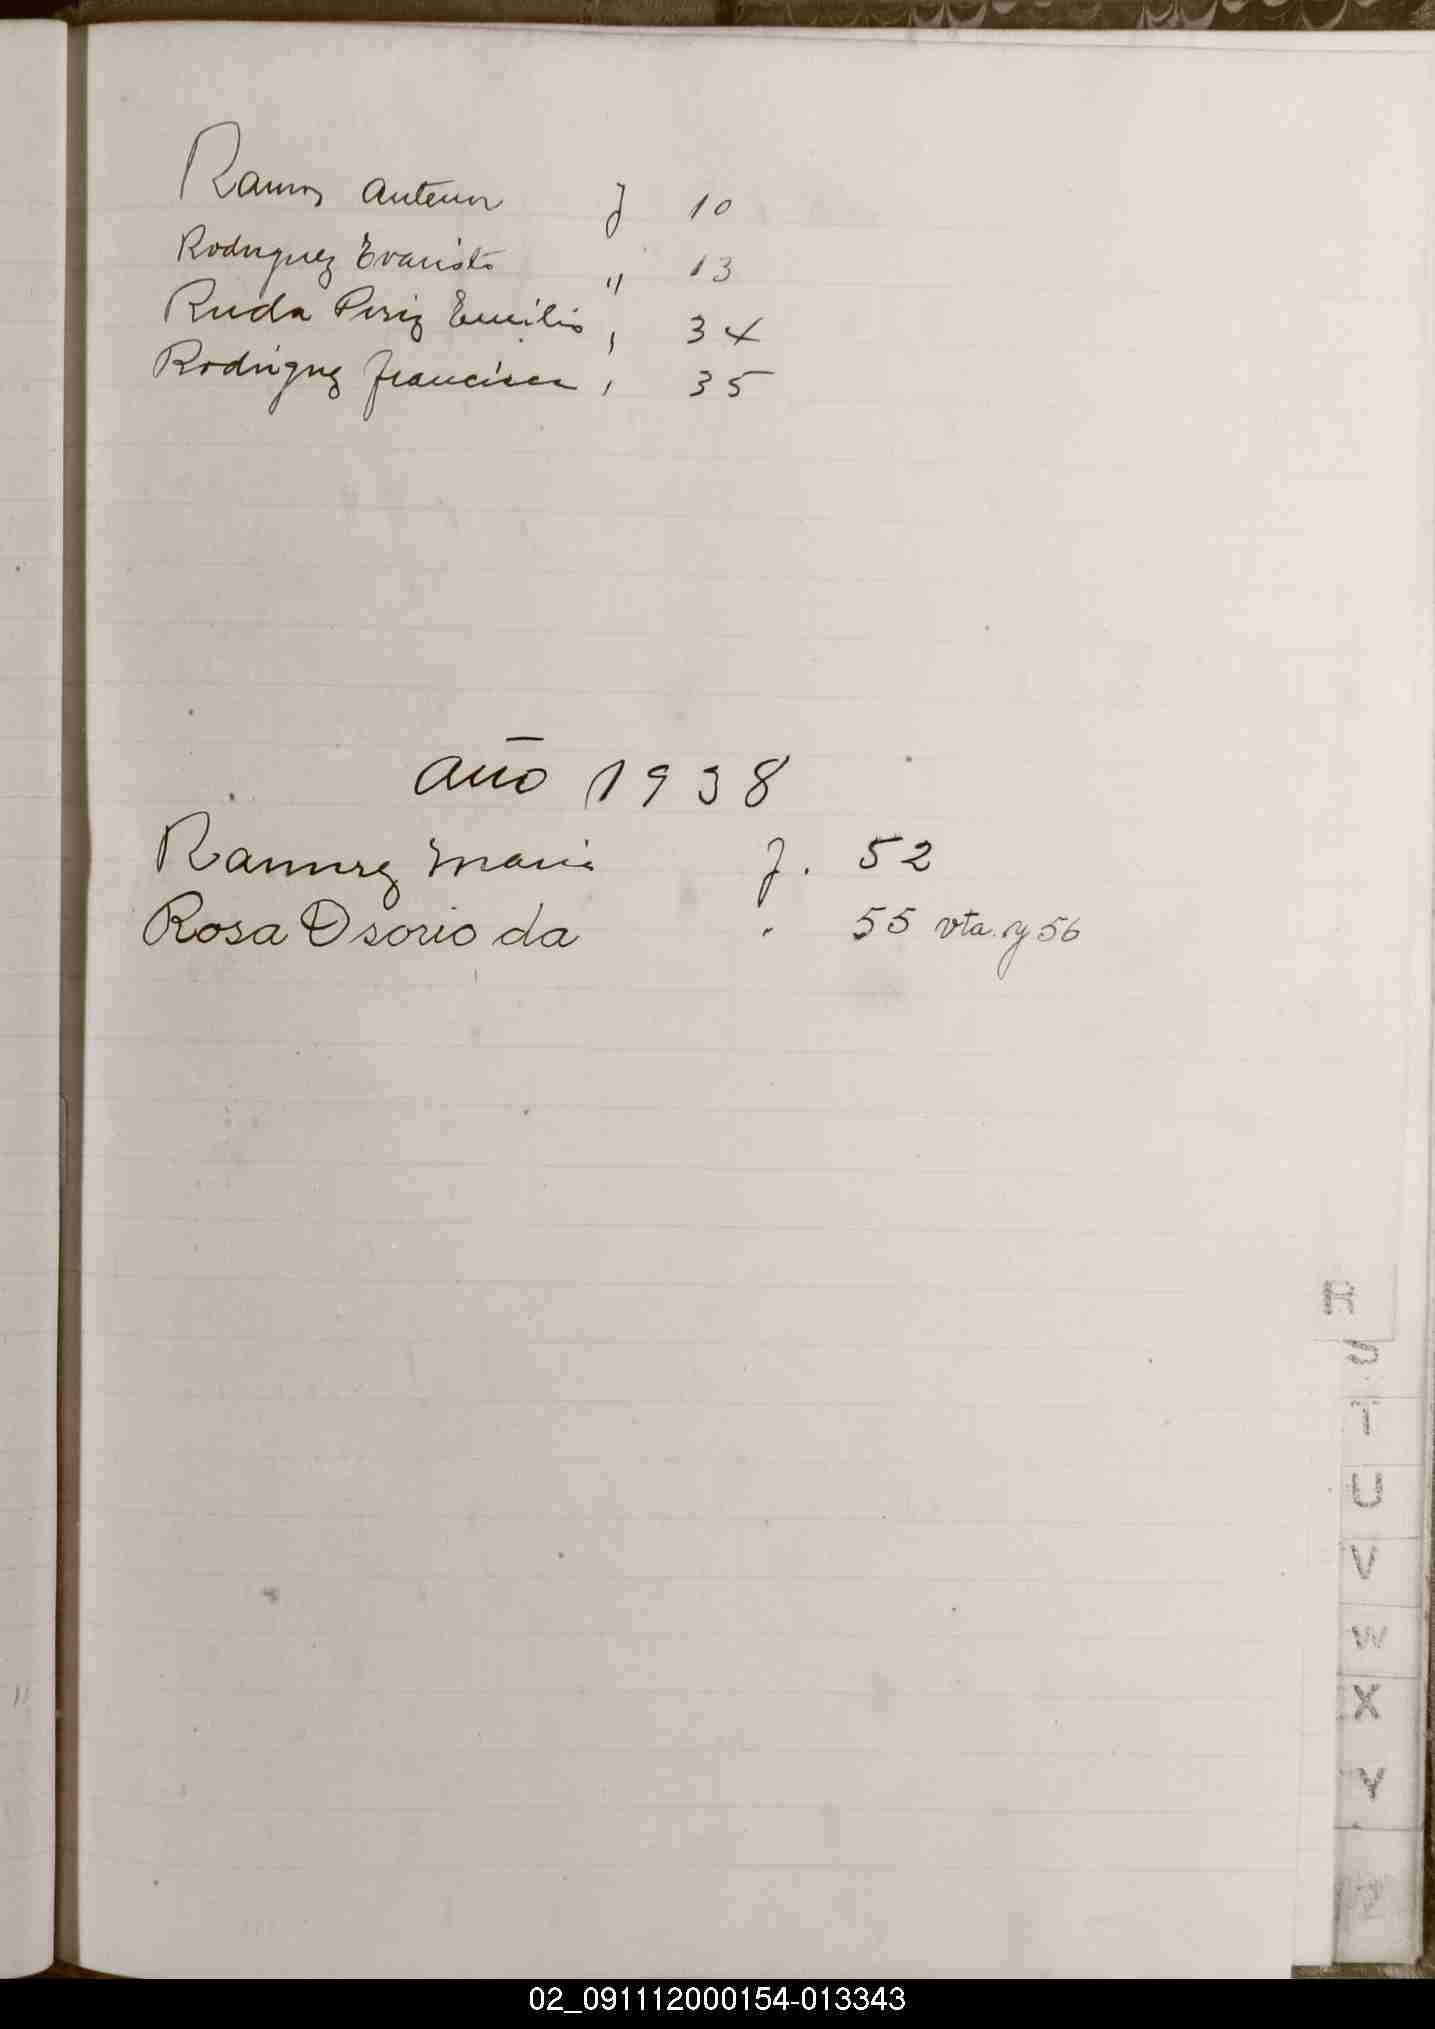 Ramos Antenor f 10
Rodriguez Evaristo " 13
Ruda Perez Emilio , 34
Rodriguez Francisca , 35
Año 1938
Ramirez Maria f. 52
Rosa Osorio da " 55 vta. y 56
R
S
T
U
V
W
X
Y
Z
02_091112000154-013343